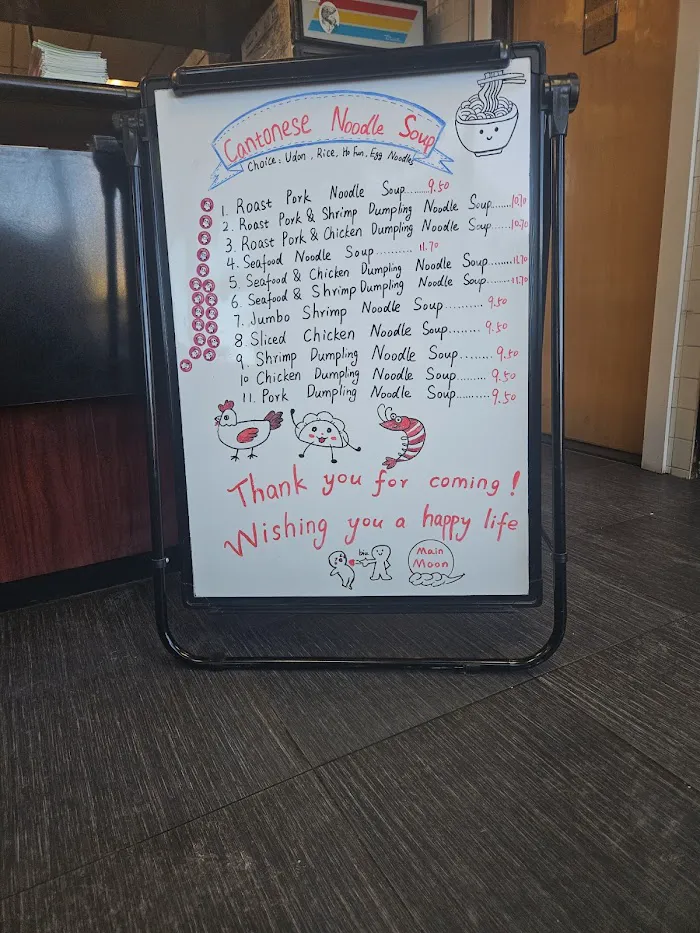 Cantonese Noodle Soup
Choice: Udon, Rice, Ho Fun, Egg Noodles
1. Roast Pork Noodle Soup......9.50
2. Roast Pork & Shrimp Dumpling Noodle Soup......10.70
3. Roast Pork & Chicken Dumpling Noodle Soup......10.70
4. Seafood Noodle Soup.......... 11.70
5. Seafood & Chicken Dumpling Noodle Soup.......11.70
6. Seafood & Shrimp Dumpling Noodle Soup......11.70
7. Jumbo Shrimp Noodle Soup......... 9.50
8. Sliced Chicken Noodle Soup........ 9.50
9. Shrimp Dumpling Noodle Soup........ 9.50
10 Chicken Dumpling Noodle Soup........ 9.50
11. Pork Dumpling Noodle Soup.......... 9.50
Thank you for coming!
Wishing you a happy life
Main
Moon